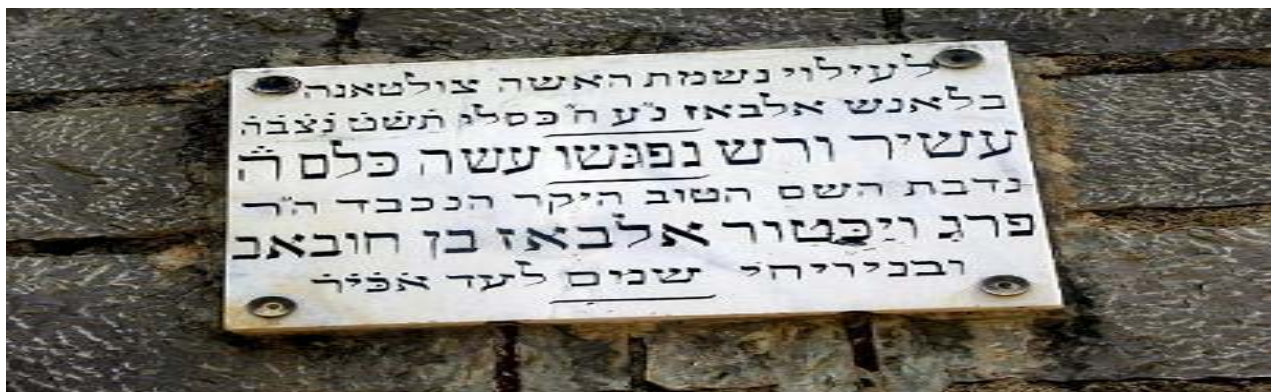 לעילוי נשמת האשה צולטאנה
בלאנש אלבאז נ״ע ה״ כסלו תשׂט נצבה
עשיר ורש נפגשו עשה כלם ה׳
נדבת השם הטוב היקר הנכבד ה״ר
פרג ויכטור אלבאז בן חובאב
ובניו יחי שנים לעד אכי״ר